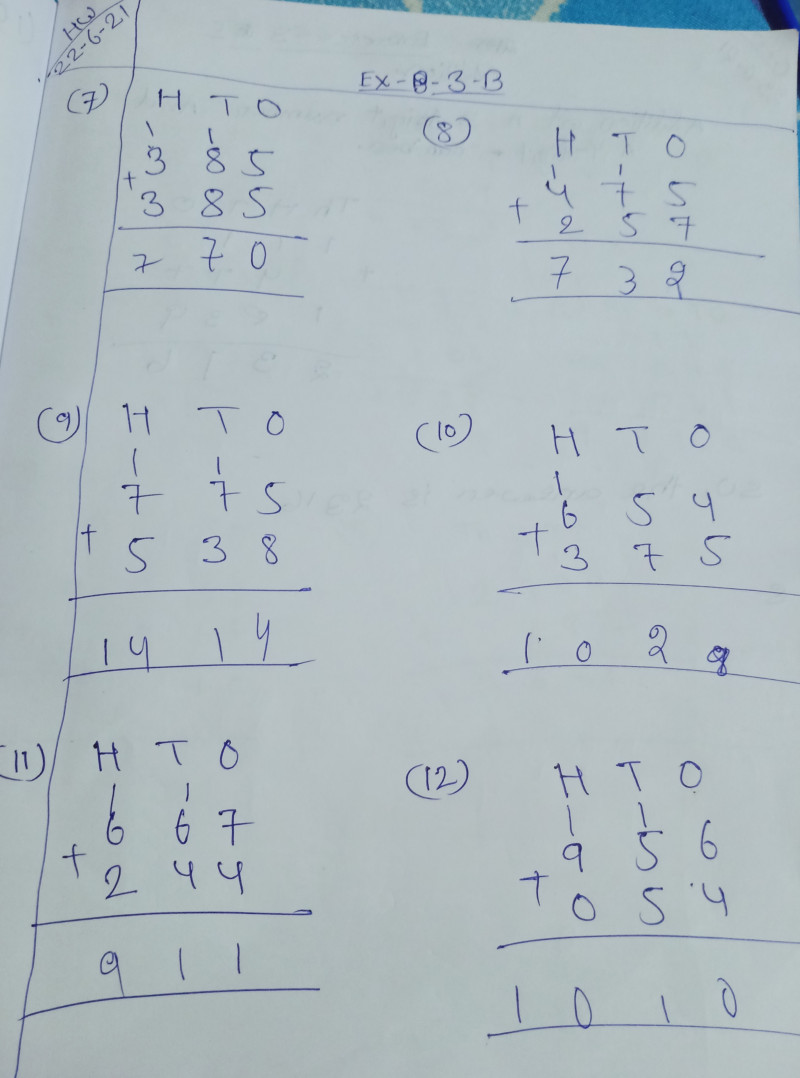 HW
22-6-21
EX-8-3-B
(7) H T O
1 1
3 8 5
+ 3 8 5
7 7 0
(8) H T O
1 1
4 7 5
+ 2 5 7
7 3 2
(9) H T O
1 1
7 7 5
+ 5 3 8
14 1 4
(10) H T O
1
6 5 4
+ 3 7 5
1 0 2 9
(11) H T O
1 1
6 6 7
+ 2 4 4
9 1 1
(12) H T O
1 1
9 5 6
+ 0 5 4
1 0 1 0